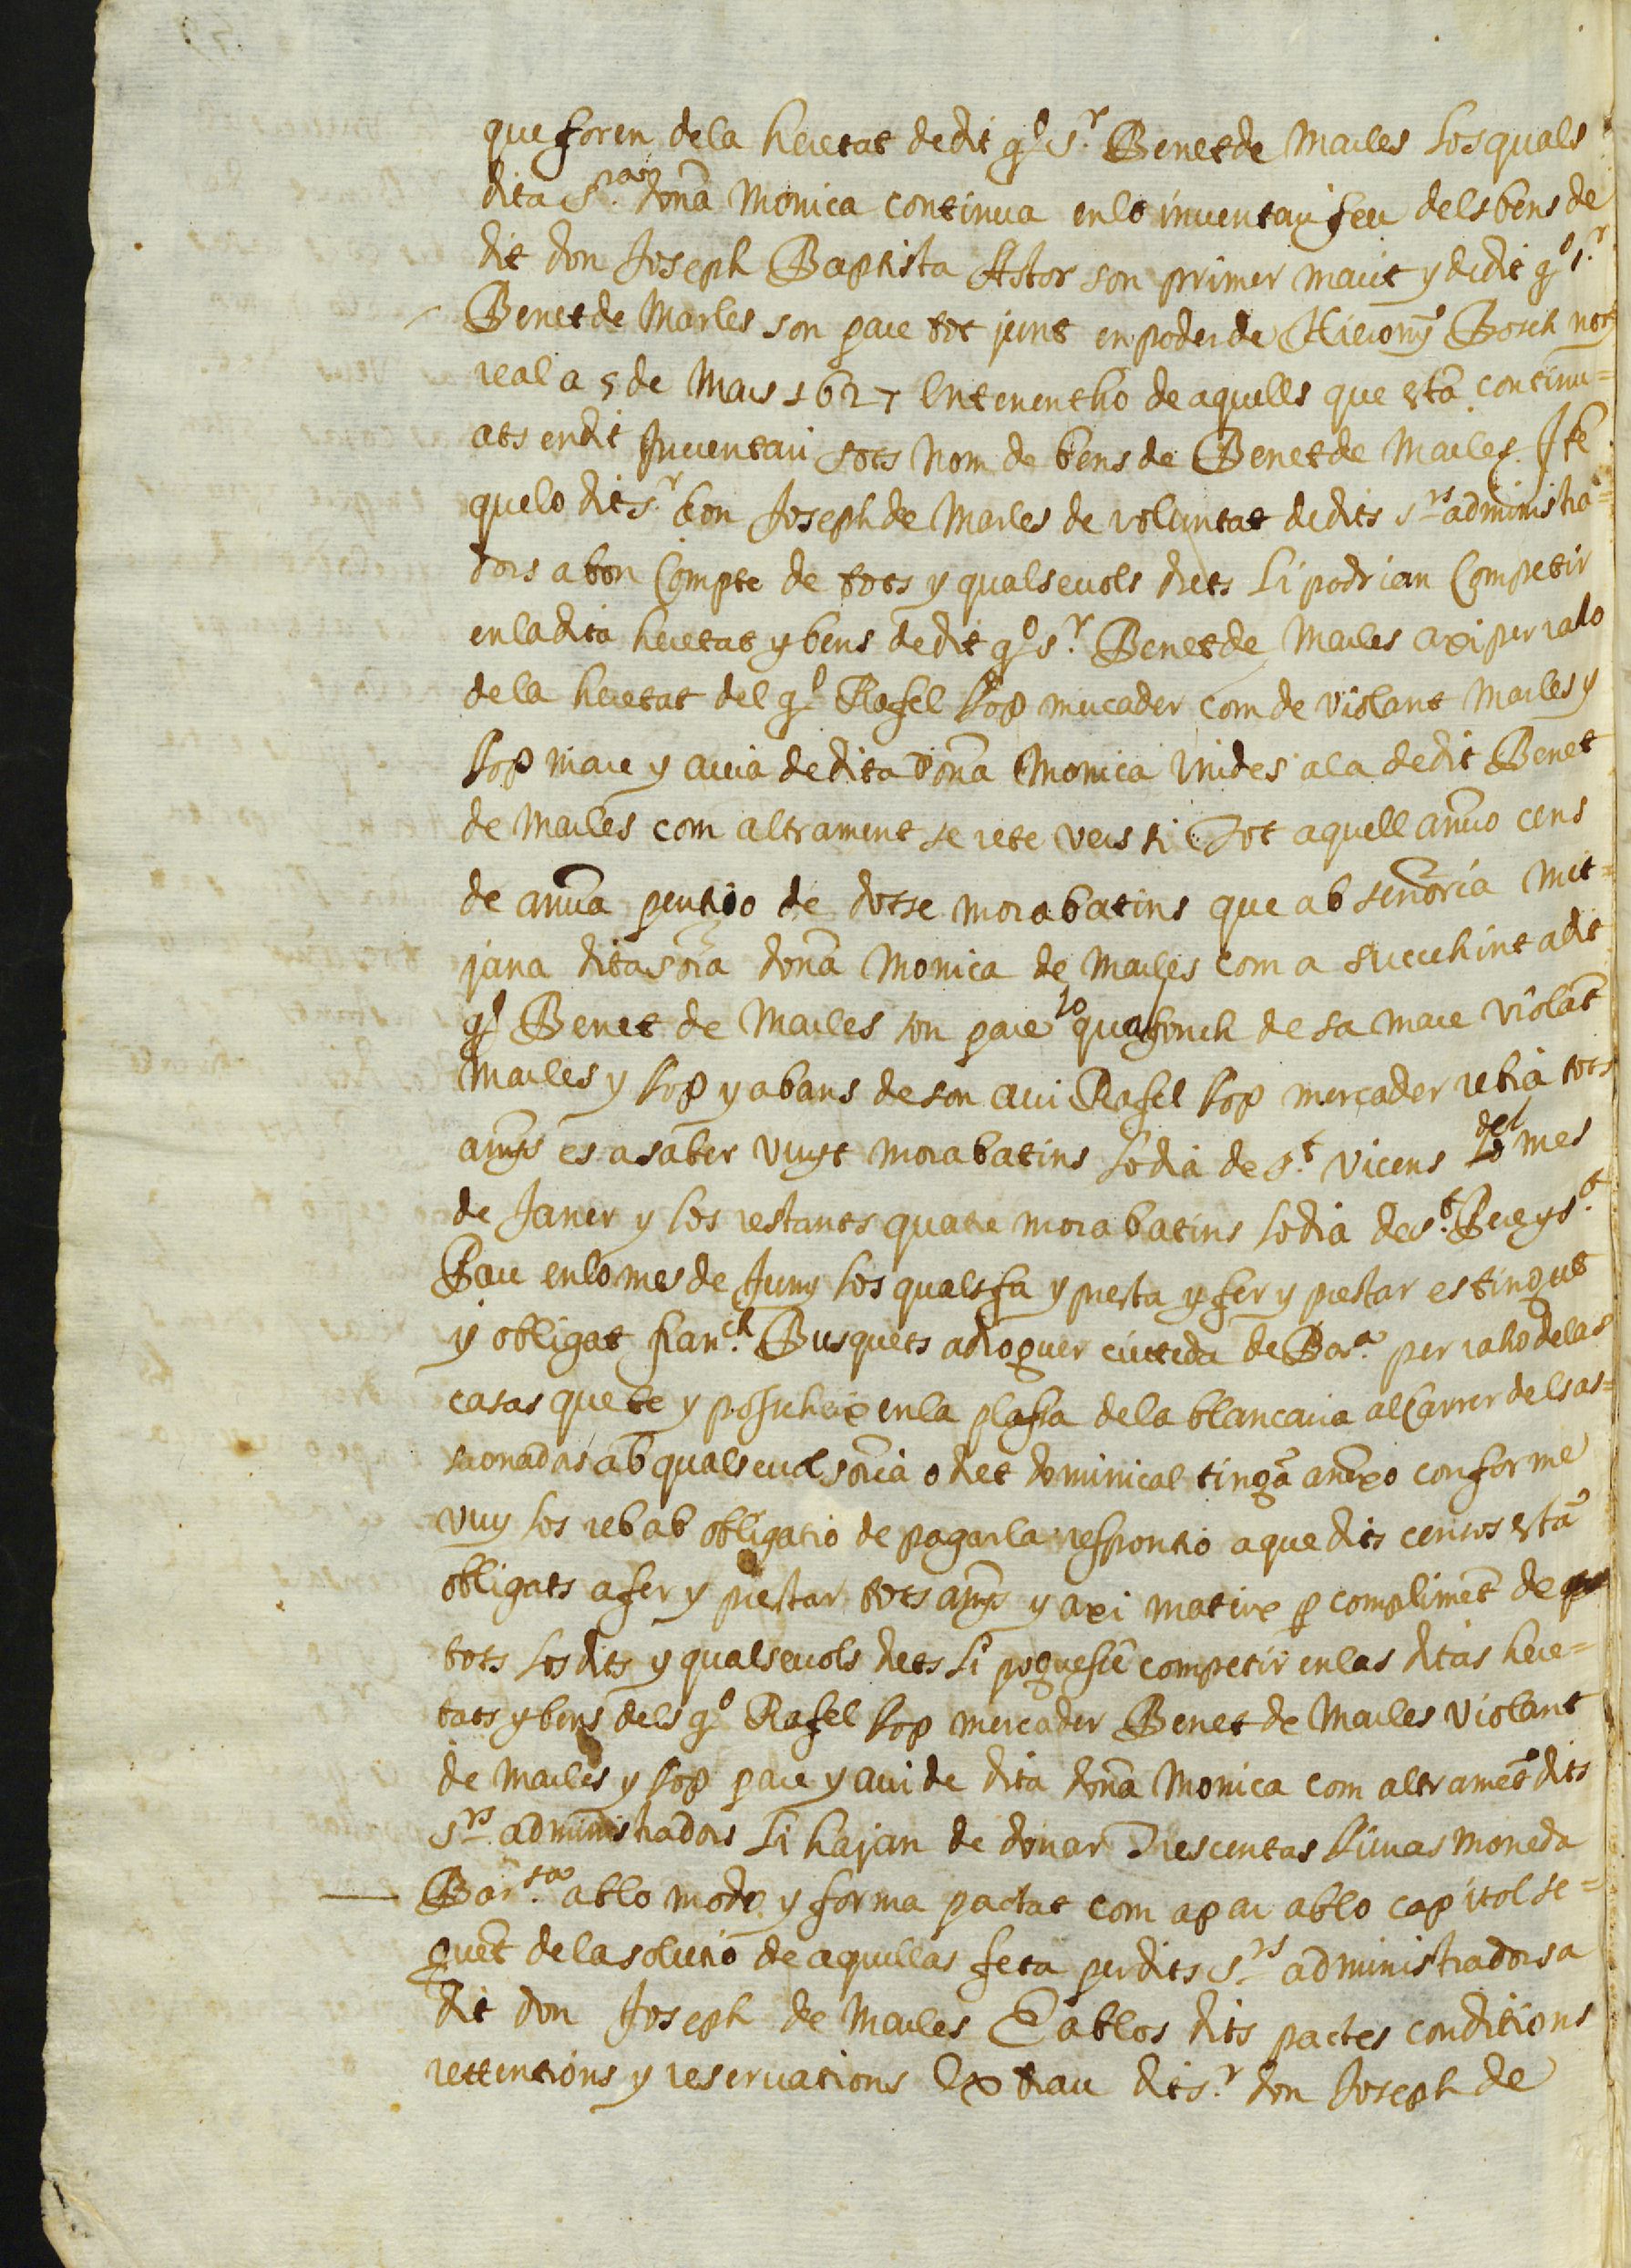 que foren dela heretat dedit qº sr. Benet de Marles los quals
dita sra. dona Monica continua en lo inventari feu dels bens de
dit don Joseph Baptista Astor son primer marit y dedit qº sr.
Benet de Marles son pare tot junt en poder de Hierony Bosch not
real a 5 de Mars 1627 Entenentho de aquells que está continu=
ats endit Inventari sots nom de bens de Benet de Marles Ite
que lo dit sr. don Joseph de Marles de voluntat de dits srs administra=
dors a bon Compte de tots y qualsevols drets li podrian Competir
en la dita heretat y bens dedit qº sr. Benet de Marles axi per raho
de la heretat del qº Rafel Llop mercader com de violant Marles y
Llop mare y avia de dita dona Monica unides a la dedit Benet
de Marles com altrament se rete vers si Tot aquell annuo cens
de annua pentio de dotse morabatins que ab señoria mit=
jana dita sora dona Monica de Marles com a succehint a dit
qº Benet de Marles son pare lo qual fonch de sa mare violat
Marles y Llop y abans de son avi Rafel Llop mercader rebia tots
anys es a saber vuyt morabatins lo dia de st. vicens del mes
de Janer y los restants quatre morabatins lo dia de st. Pere y st.
Pau en lo mes de Juny los quals fa y presta y fer y prestar es tingut
y obligat Franch. Busquets adroguer ciutedá de Bara. per raho de las
casas que te y possiheix en la plassa de la blancaria al Carrer dels as=
saonadors ab qualsevol soria o dret dominical tinga anexo conforme
vuy los reb ab obligatio de pagar la responsio a que dits censos está
obligats a fer y prestar tots anys y axi mateix p compliment de
tots los dits y qualsevols drets li poguessé competir en las ditas here=
tats y bens dels qº Rafel Llop mercader Benet de Marles violant
de Marles y Llop pare y avi de dita dona Monica com altramét dits
srs. administradors li hajan de donar Trescentas lliuras moneda
Barsa. ab lo modo y forma pactat com apar ab lo capitol se=
guét de la solutio de aquellas feta per dits srs administradors a
dit don Joseph de Marles E ab los dits pactes conditions
rettentions y reservations Extrau dit sr. don Joseph de